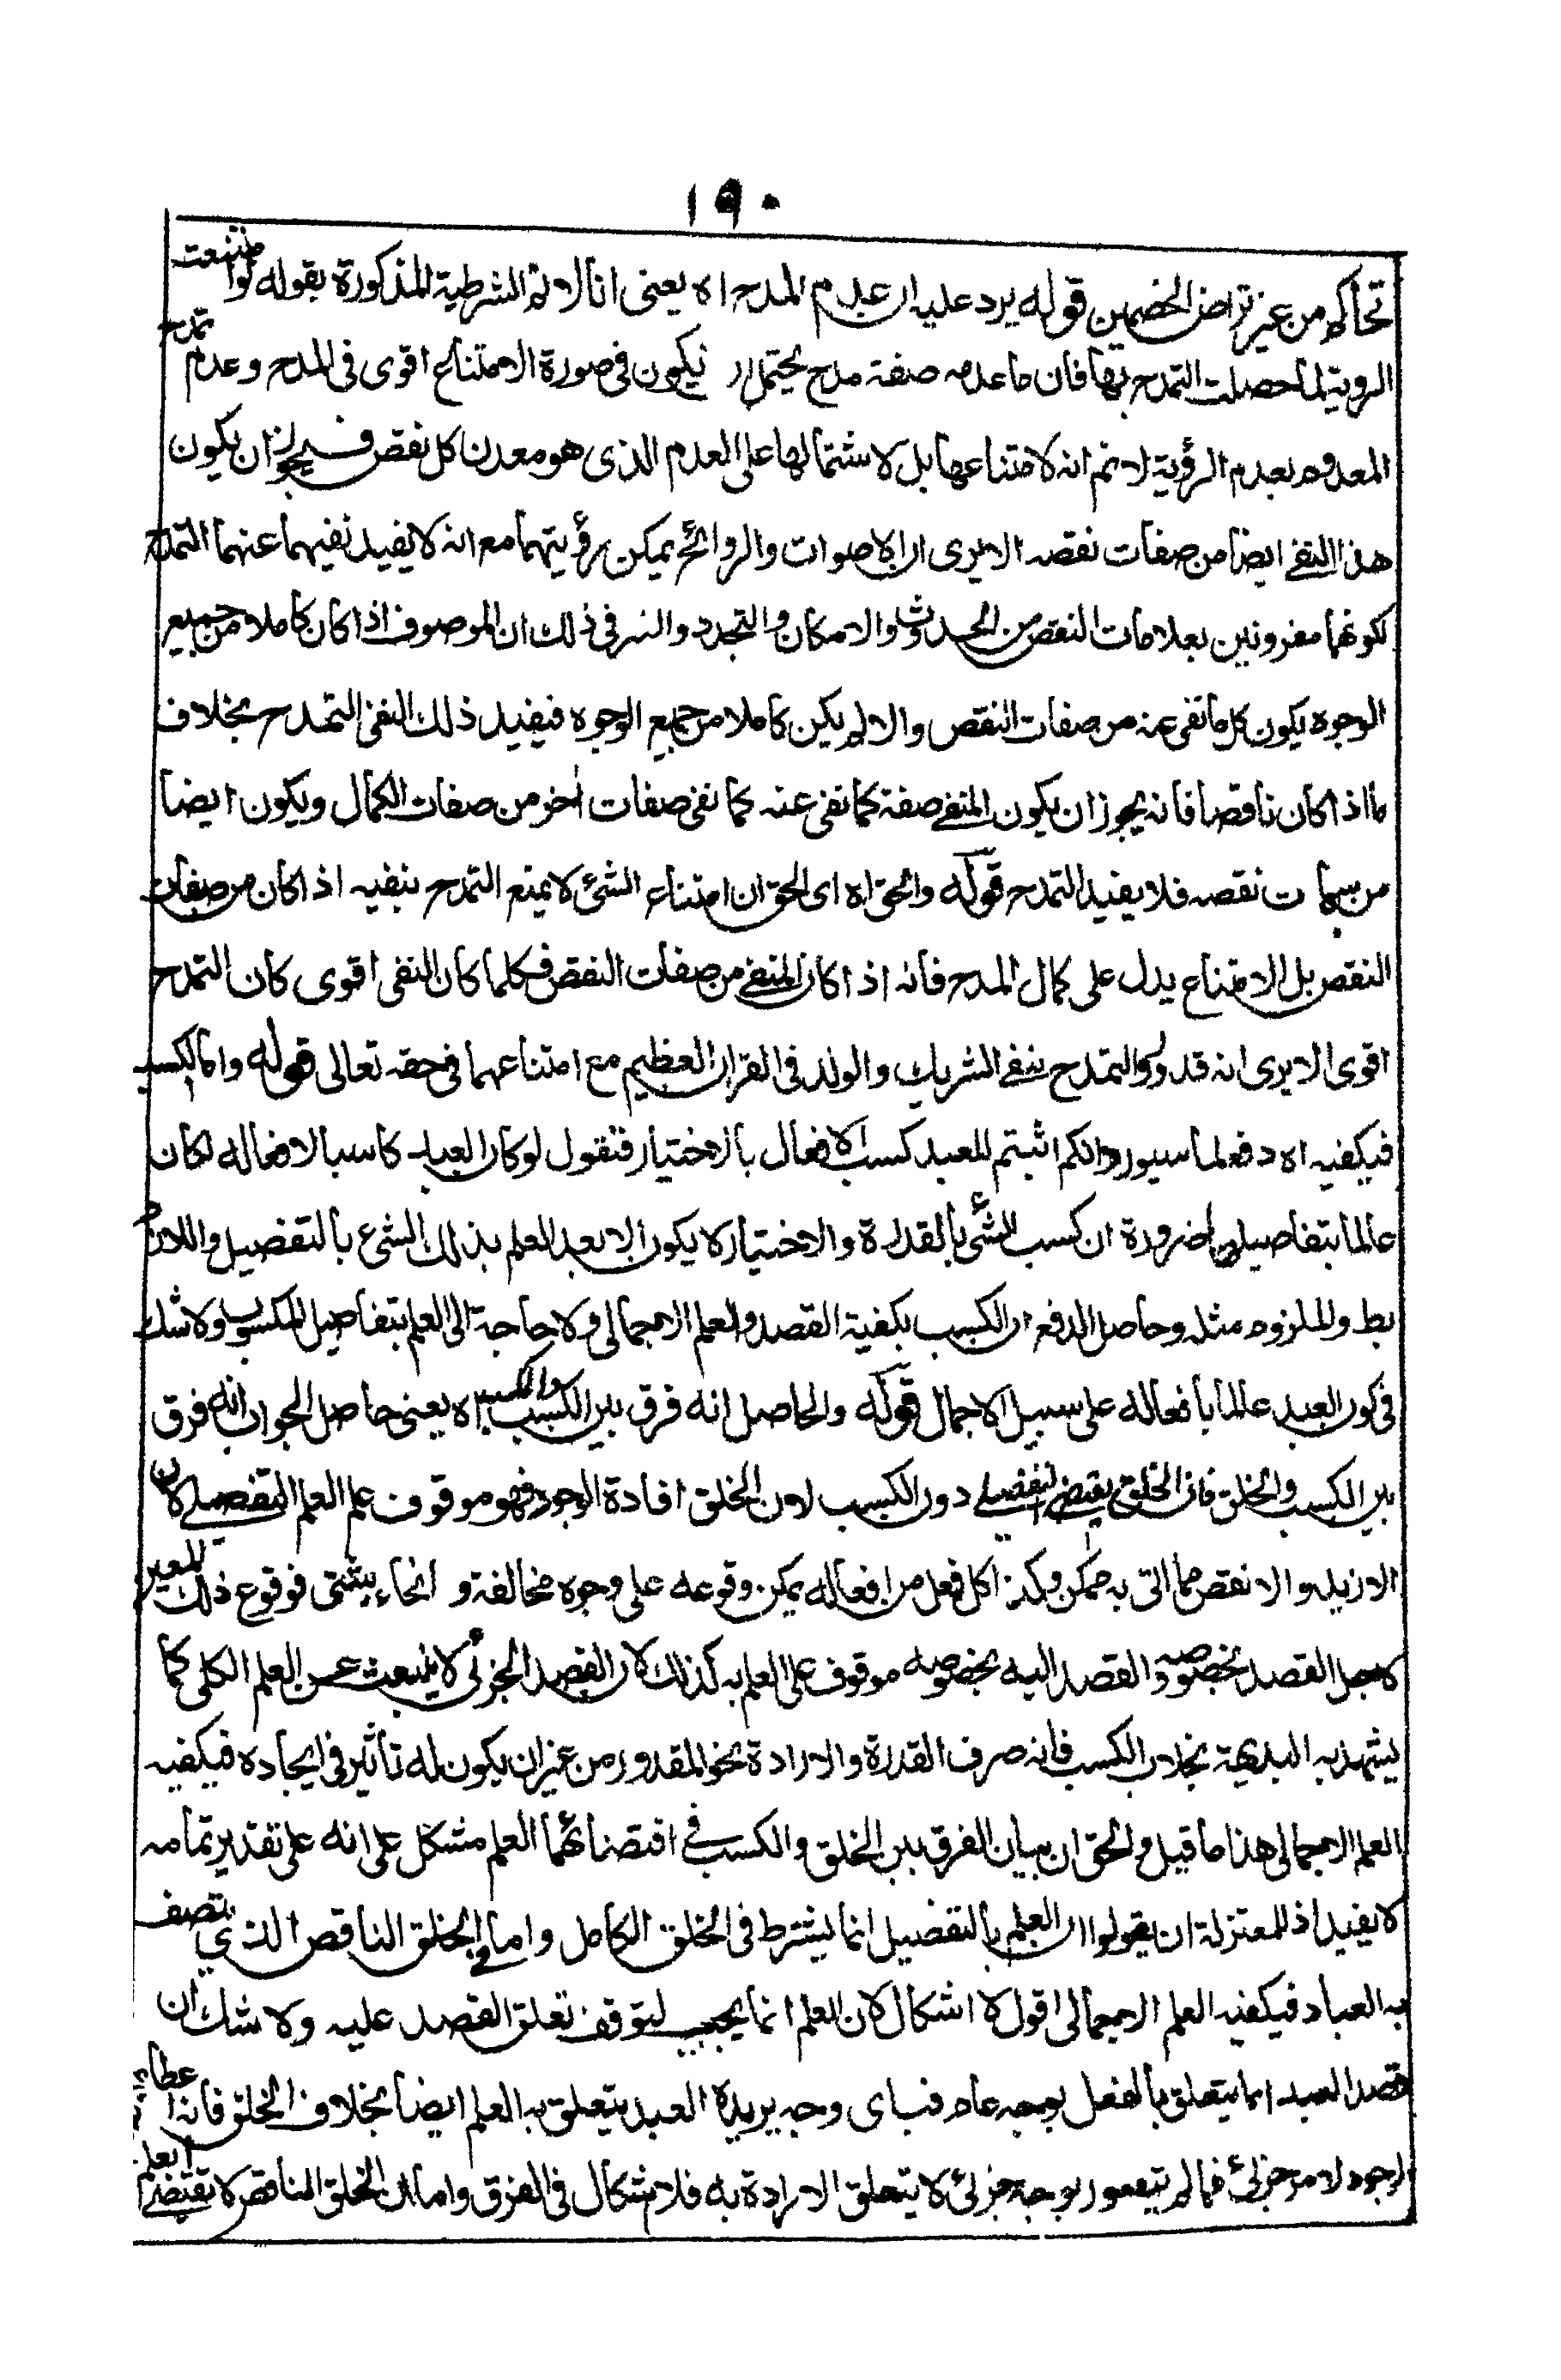 ١٩٠
تحاكم من غير تراض الخصمين قوله يرد عليه ان عدم المدح اه يعنى انا لا نم الشرطية المذكورة بقوله لو امتنعت
الروية لما حصلت التمدح بها فان ما عدمه صفة مدح يحتمل ان يكون فى صورة الامتناع اقوى فى المدح وعدم تمدح
المعدوم بعدم الرؤية لا نم انه لامتناعها بل لاشتمالها على العدم الذى هو معدن كل نقص فيجوز ان يكون
هذا النفى ايضا من صفات نقصه الا يرى ان الاصوات والروائح يمكن رؤيتهما مع انه لا يفيد نفيهما عنهما التمدح
لكونهما مقرونين بعلامات النقص من الحدوث والامكان والتجدد والسر فى ذلك ان الموصوف اذا كان كاملا من جميع
الوجوه يكون كل ما نفى عنه من صفات النقص والا لم يكن كاملا من جميع الوجوه فيفيد ذلك النفى التمدح بخلاف
ما اذا كان ناقصا فانه يجوز ان يكون المنفى صفة كما نفى عنه كما نفى صفات اخر من صفات الكمال ويكون ايضا
من سمات نقصه فلا يفيد التمدح قوله والحق اه اى الحق ان امتناع الشئ لا يمنع التمدح بنفيه اذا كان من صفات
النقص بل الامتناع يدل على كمال المدح فانه اذا كان المنفى من صفات النقص فكلما كان النفى اقوى كان التمدح
اقوى الا يرى انه قد ورد التمدح بنفى الشريك والولد فى القران العظيم مع امتناعهما فى حقه تعالى قوله واما الكسب
فيكفيه اه دفع لما سيورد انكم اثبتم للعبد كسب الافعال بالاختيار فنقول لو كان العبد كاسبا لافعاله لكان
عالما بتفاصيلها ضرورة ان كسب الشئ بالقدرة والاختيار لا يكون الا بعد العلم بذلك الشئ بالتفصيل واللازم
بط والملزوم مثله وحاصل الدفع ان الكسب يكفية القصد والعلم الاجمالى ولا حاجة الى العلم بتفاصيل المكسوب ولا شك
فى كون العبد عالما بافعاله على سبيل الاجمال قوله والحاصل انه فرق بين الكسب والكسب اه يعنى حاصل الجواب انه فرق
بين الكسب والخلق فان الخلق يقتضى التفصيلى دون الكسب لان الخلق افادة الوجود فهو موقوف على العلم التفصيلى لان
الازيد والانقص مما اتى به ممكن وكذا كل فعل من افعاله يمكن وقوعه على وجوه مخالفة و انحاء شتى فوقوع ذلك المعين
لاجل القصد بخصوصه والقصد اليه بخصوصه موقوف على العلم به كذلك لان القصد الجزئى لا ينبعث عن العلم الكلى كما
يشهد به البديهة بخلاف الكسب فانه صرف القدرة والارادة نحو المقدور من غير ان يكون له تأثير فى ايجاده فيكفيه
العلم الاجمالى هذا ما قيل والحق ان بيان الفرق بين الخلق والكسب فى اقتضائهما العلم مشكل على انه على تقدير تمامه
لا يفيد اذ للمعتزلة ان يقولوا ان العلم بالتفصيل انما يشترط فى الخلق الكامل واما فى الخلق الناقص الذى يتصف
به العباد فيكفيه العلم الاجمالى اقول لا اشكال لان العلم انما يجب لتوقف تعلق القصد عليه ولا شك ان
قصد العبد انما يتعلق بالفعل بوجه عام فباى وجه يريده العبد يتعلق به العلم ايضا بخلاف الخلق فانه اعطاء
الوجود لامر جزئى فما لم يتصور بوجه جزئى لا يتعلق الارادة به فلا اشكال فى الفرق واما ان الخلق الناقص لا يقتضى العلم